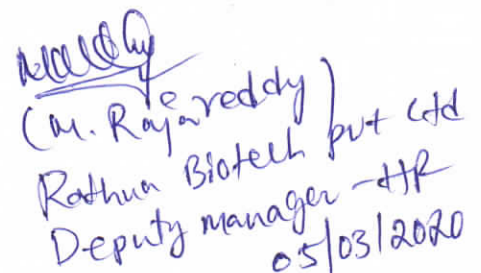 (M. Rajareddy)
Rathna Biotech pvt Ltd
Deputy manager -HR
05/03/2020